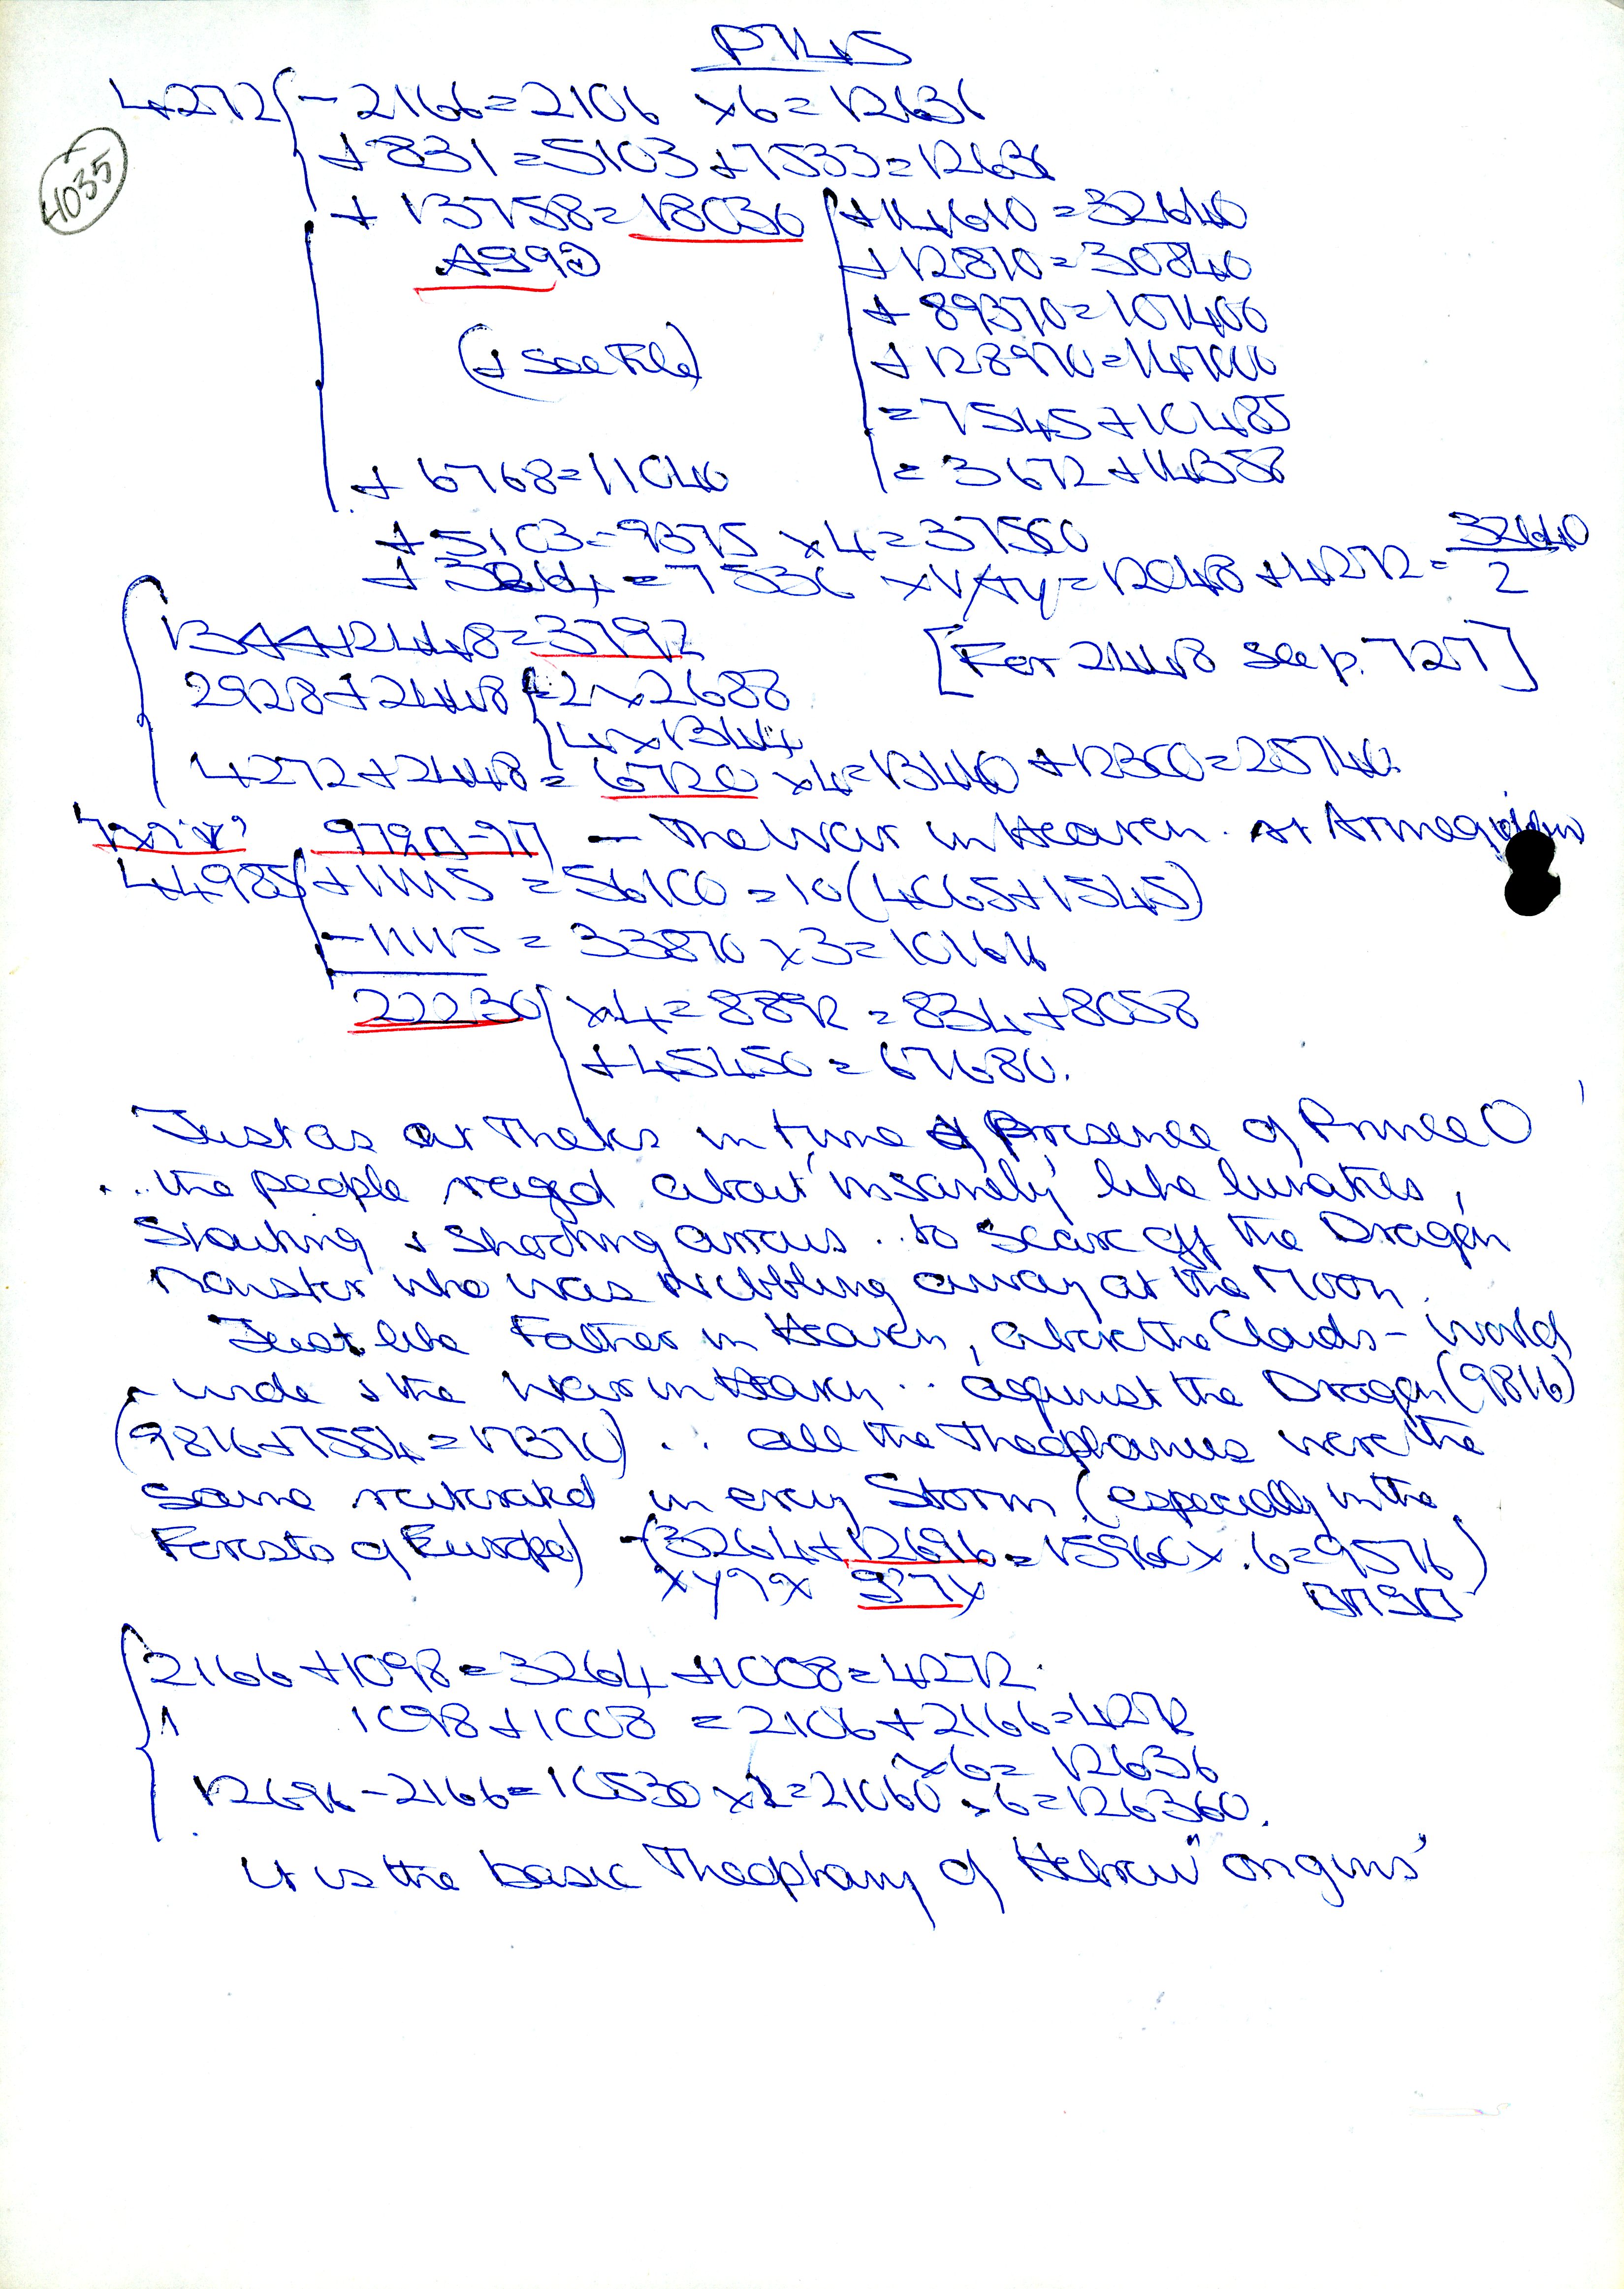 4272 { - 2166 = 2106 x 6 = 12636
4035
+ 831 = 5103 + 7533 = 12636
+ 13758 = 18030 { + 14610 = 32640
+ 12810 = 30840
(+ see File)
+ 89370 = 107400
+ 128970 = 147000
= 7545 + 10485
+ 6768 = 11040
= 3672 + 14358
+ 5103 = 9375 x 4 = 37500
+ 3264 = 7536 = 12048 + 4272 = 32640 / 2
1344 + 2448 = 3792
[For 2448 see p. 727]
2928 + 2448 = 2 x 2688
4 x 1344
4272 + 2448 = 6720 x 4 = 13440 + 12300 = 25740.
— The War in Heaven. at
44985 { + 11115 = 56100 = 10 (4065 + 1545)
- 11115 = 33870 x 3 = 10161
22230 { x 4 = 8892 = 834 + 8058
+ 45450 = 67680.
Just as at in time of Presence of Prince O
.. the people raged about 'insanely' like lunatics,
Shouting & shooting arrows .. to scare off the Dragon
Monster who was nibbling away at the Moon.
Just like Father in Heaven, above the Clouds - world
- wide & the War in Heaven .. against the Dragon (9816)
(9816 + 7554 = 17370) .. all the Theophanies were the
same reiterated in every Storm (especially in the
Forests of Europe) - (3264 + 12696 = 15960 x .6 = 9576)
2166 + 1098 = 3264 + 1008 = 4272.
1098 + 1008 = 2106 + 2166 = 4272
x 6 = 12636
12696 - 2166 = 10530 x 2 = 21060 x 6 = 126360.
It is the basic Theophany of Hebrew "origins"